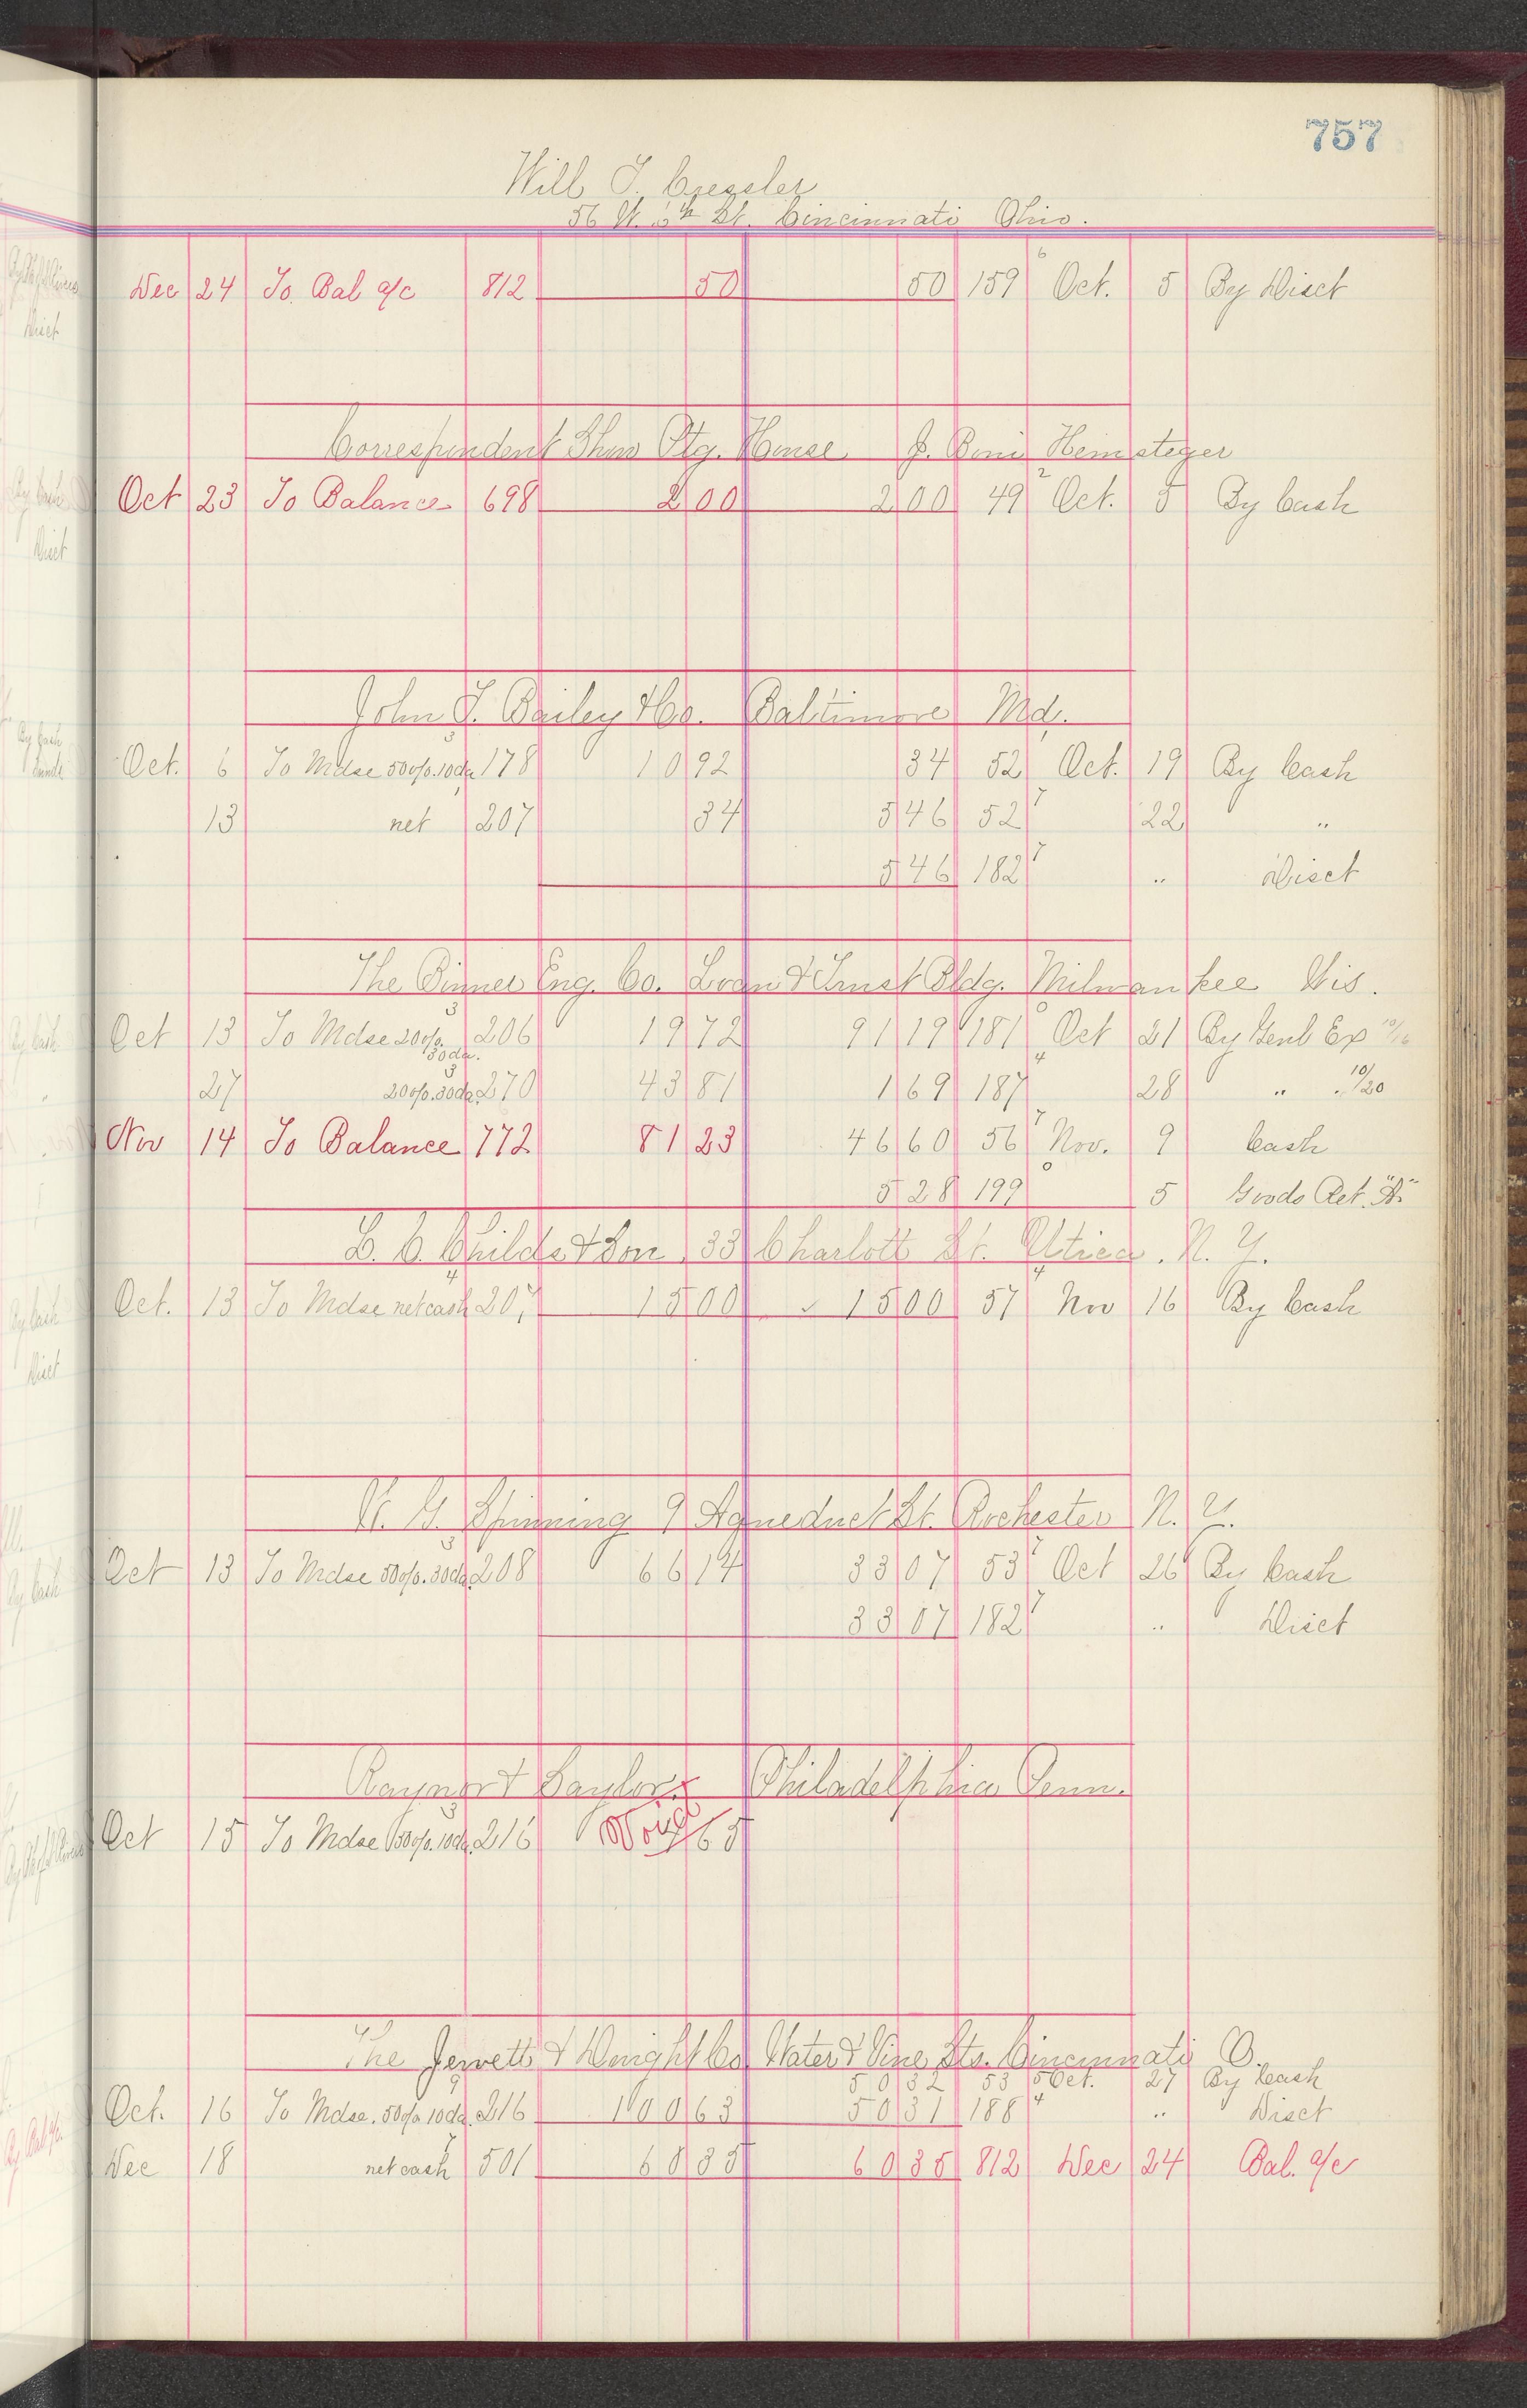 757
Will T. Cressler
56 W. 5th St. Cincinnati Ohio.
Dec 24 To Bal a/c 812 50 50 159 6 Oct. 5 By Disct
Correspondent Show Ptg. House J. Boni Hemsteger
Oct 23 To Balance 698 2 00 2 00 49 2 Oct. 5 By Cash
John T. Bailey & Co. Baltimore Md.
Oct. 6 To Mdse 50%.10da 3 178 10 92 34 52 Oct. 19 By Cash
13 net 207 34 5 46 52 7 22 "
5 46 182 7 " Disct
The Binner Eng. Co. Loan & Trust Bldg. Milwaukee Wis.
Oct 13 To Mdse 20%. 30da. 3 206 19 72 91 19 181 0 Oct 21 By Genl Ex 10/16
27 20%.30da. 3 270 43 81 1 69 187 4 28 " " 10/20
Nov 14 To Balance 772 81 23 46 60 56 7 Nov. 9 Cash
5 28 199 0 5 Goods Ret. "A"
L. C. Childs & Son 33 Charlott St. Utica. N. Y.
Oct. 13 To Mdse net cash 4 207 15 00 15 00 57 4 Nov 16 By Cash
W. G. Spinning 9 Aqueduct St. Rochester N. Y.
Oct 13 To Mdse 50%.30da. 3 208 66 14 33 07 53 7 Oct 26 By Cash
33 07 182 7 " Disct
Raynor & Taylor Philadelphia Penn.
Oct 15 To Mdse 50%.10da. 3 216 Void 65
The Jewett & Dwight Co Water & Vine Sts. Cincinnati O.
50 32 53 5 Oct. 27 By Cash
Oct. 16 To Mdse. 50% 10da. 9 216 100 63 50 31 188 4 " Disct
Dec 18 net cash 7 501 60 35 60 35 812 Dec 24 Bal. a/c